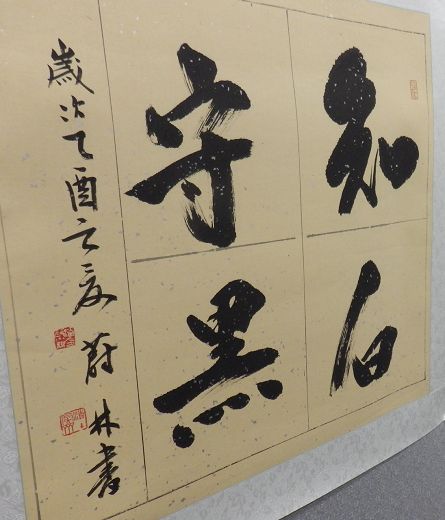 知白
守黑
歲次乙酉之夏蔚林書